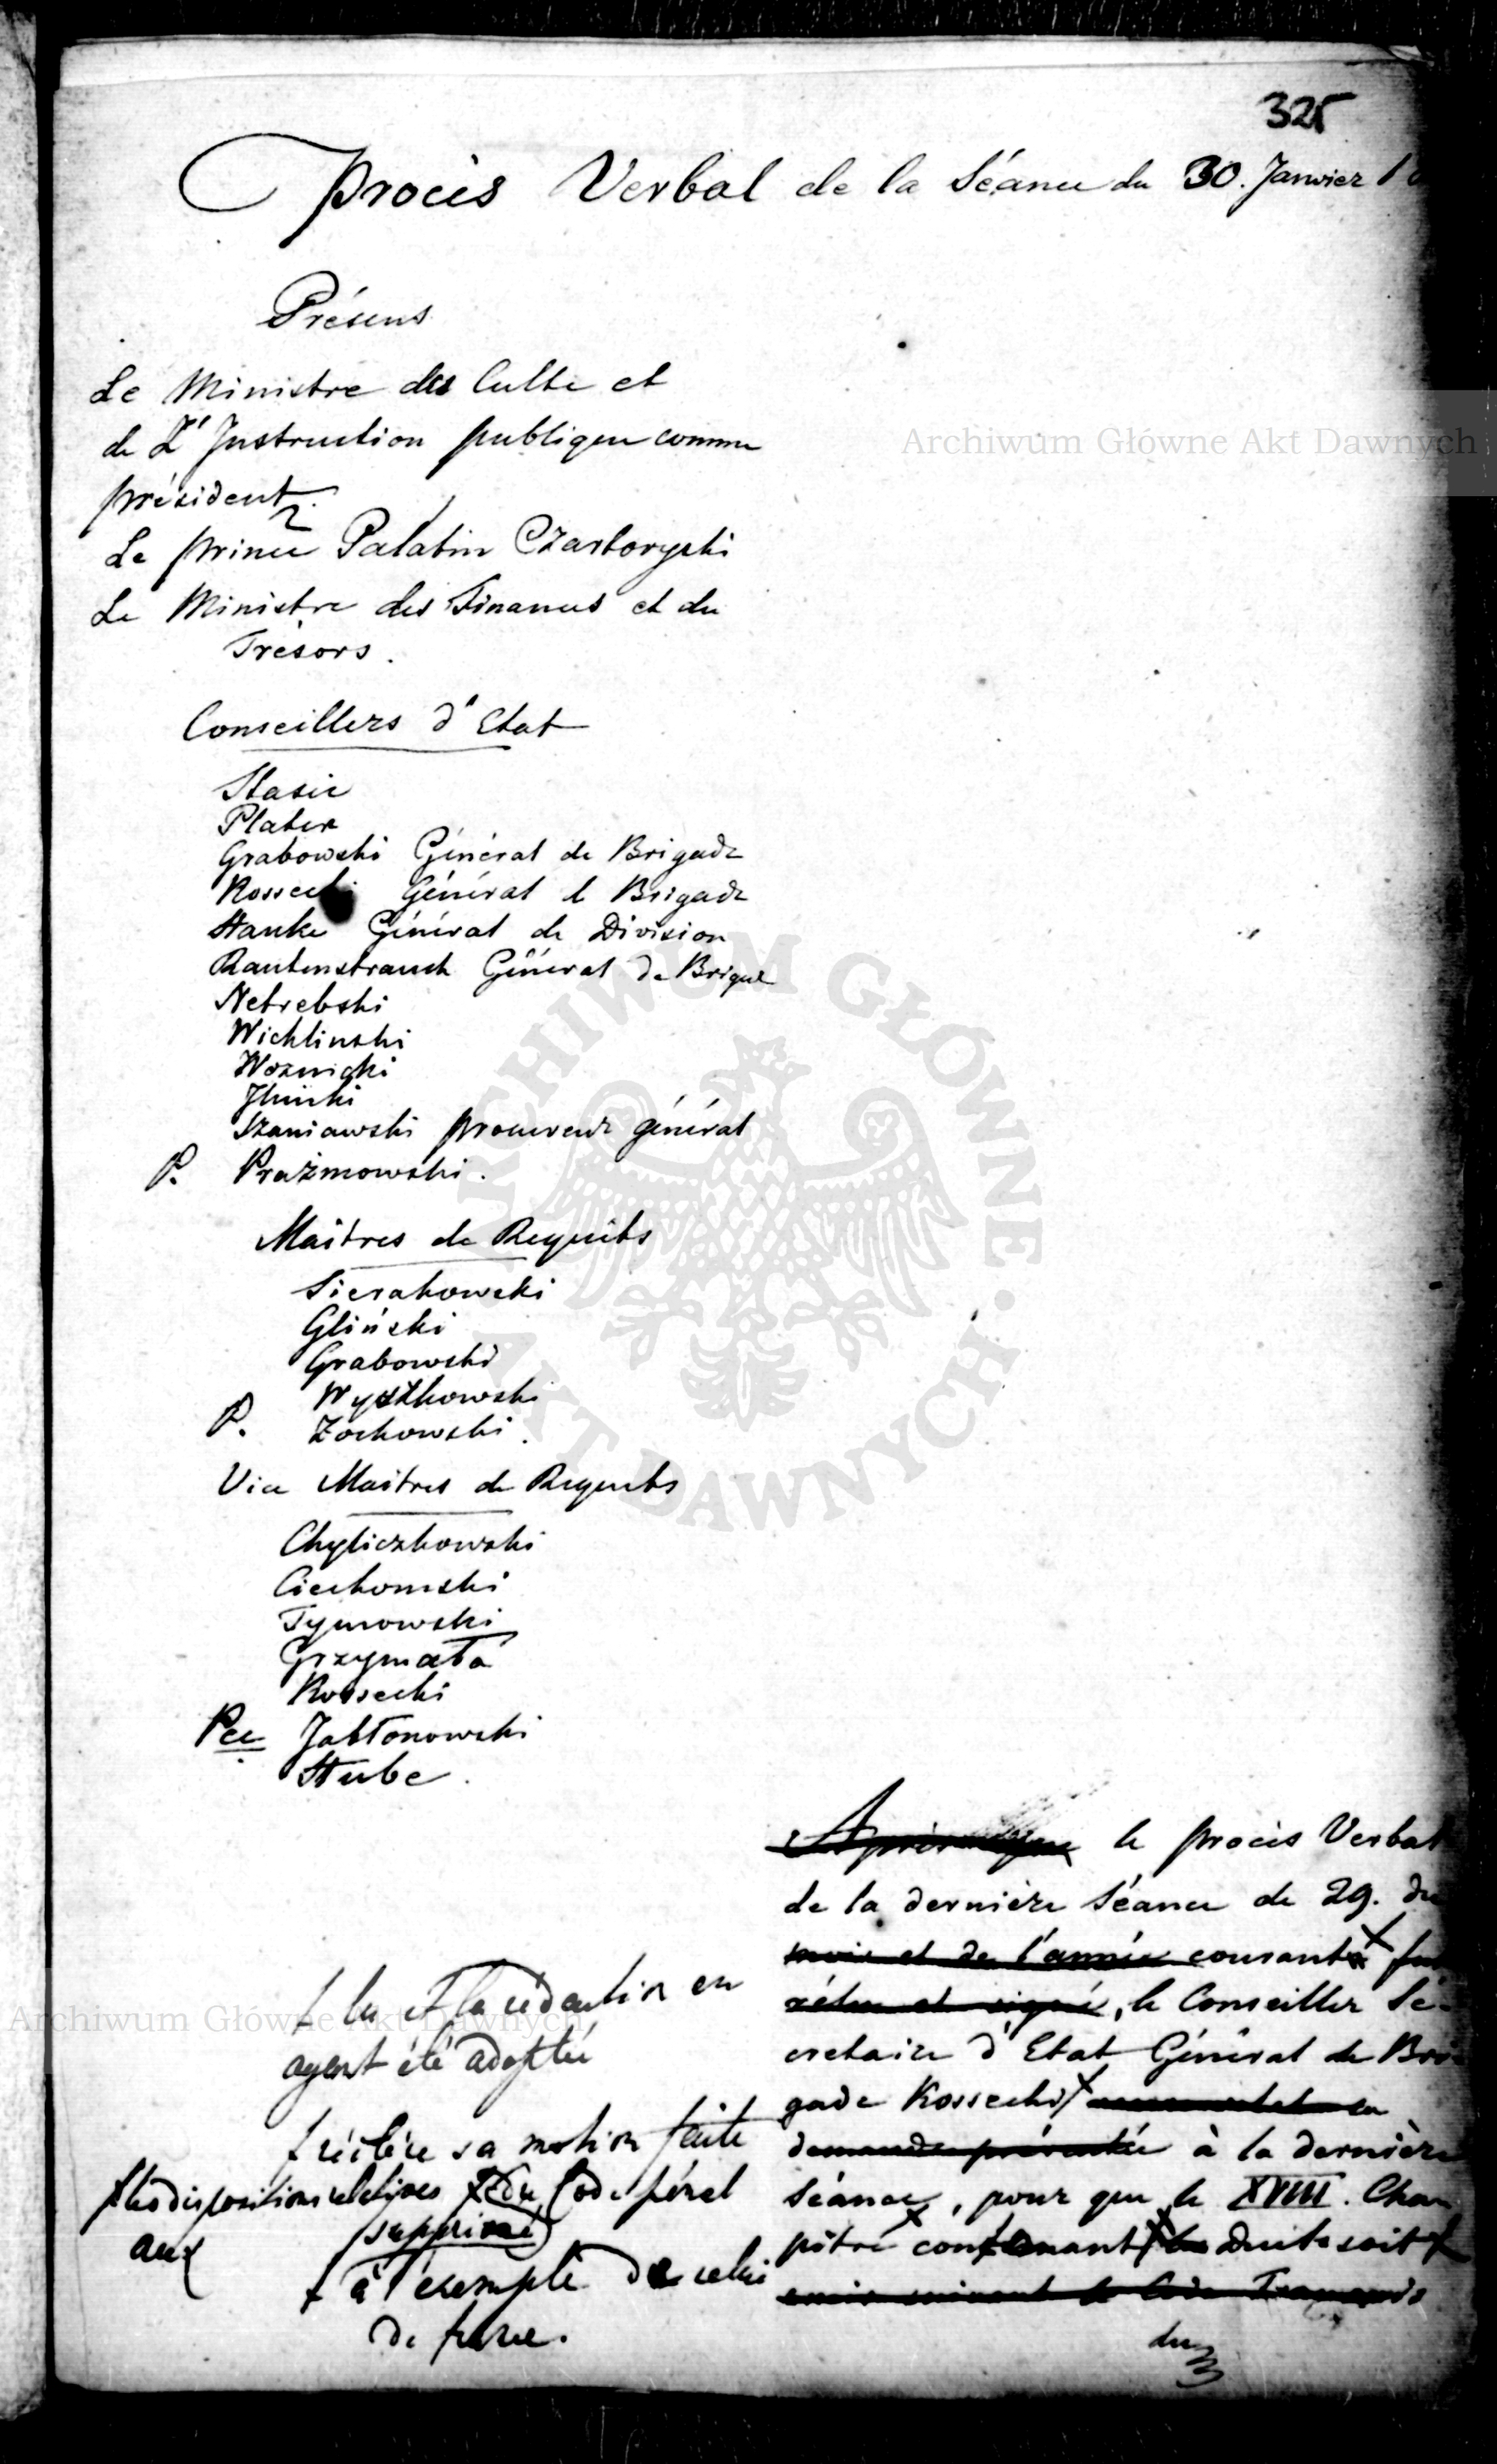 325
Procès Verbal de la Séance du 30. Janvier 18
Présens
Le Ministre des Culte et
de L'Instruction publique comme
président.
Le prince Palatin Czartoryski
Le Ministre des Finances et du
Trésors.
Conseillers d'Etat
Stasic
Plater
Grabowski Général de Brigade
Kossecki Général de Brigade
Hauke Général de Division
Rautenstrauch Général de Brigade
Netrebski
Wichlinski
Woznicki
Szaniawski procureur général
P. Prażmowski.
Maitres de Requêts
Sierakowski
Gliński
Grabowski
Wyszkowski
P. Żochowski.
Vice Maitres de Requets
Chyliczkowski
Ciechomski
Tymowski
Grzymała
Kossecki
Jabłonowski
Hube.
le procès Verbal
de la dernière Séance de 29. du
mois et de l'année courante
relu et signé, le Conseiller Se-
cretaire d'Etat Général de Bri
gade Kossecki
demande présentée à la dernière
Séance, pour que le XVIII. Cha
pitre contenant les Duels soit
omis suivant le Code Français
du
lu et la rédaction en
ayant été adopté
réitère sa motion faite
les dispositions relatives
aux
du Code pénal
supprimé
à l'exemple de celui
de france.
Archiwum Główne Akt Dawnych
ARCHIWUM GŁÓWNE AKT DAWNYCH
Archiwum Główne Akt Dawnych